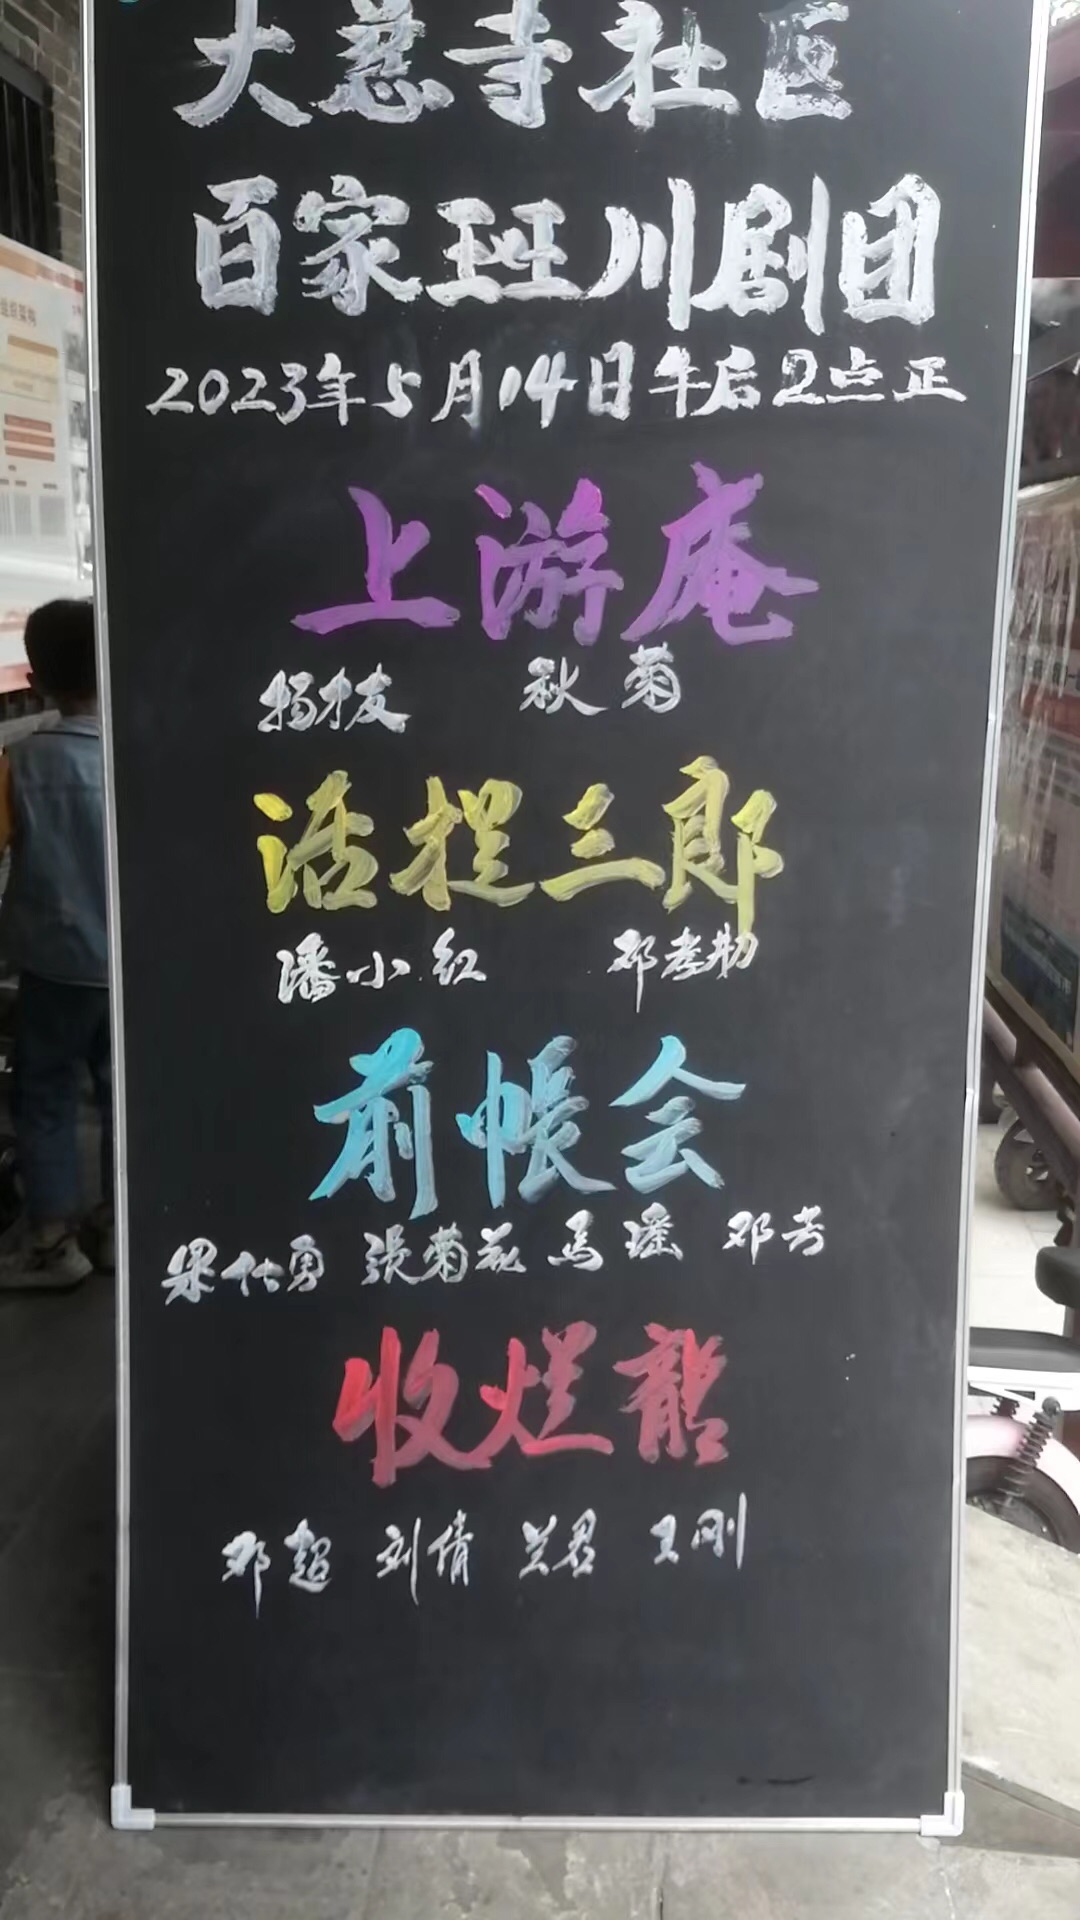 大慈寺社区
百家班川剧团
2023年5月14日午后2点正
上游庵
杨枝 秋菊
活捉三郎
潘小红 邓孝勤
前帐会
果仕勇 張菊花 馬瑶 邓芳
收烂龍
邓超 刘倩 兰君 王刚